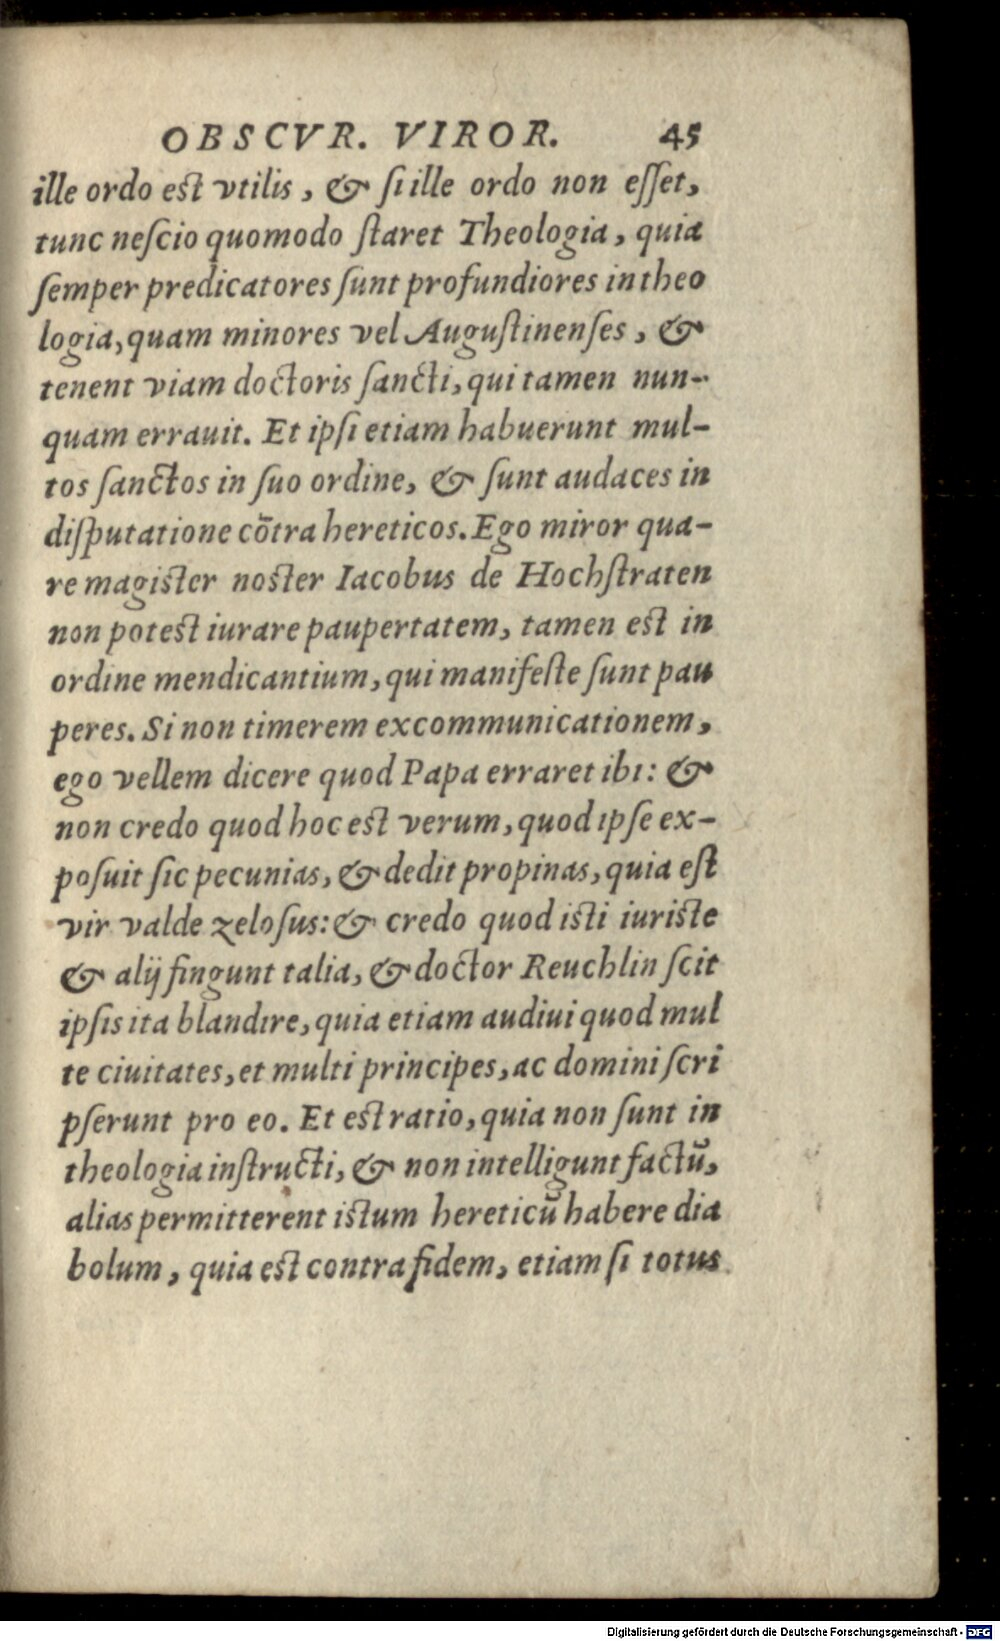 OBSCVR. VIROR. 45
ille ordo est vtilis, & si ille ordo non esset,
tunc nescio quomodo staret Theologia, quia
semper predicatores sunt profundiores in theo
logia, quam minores vel Augustinenses, &
tenent viam doctoris sancti, qui tamen nun-
quam errauit. Et ipsi etiam habuerunt mul-
tos sanctos in suo ordine, & sunt audaces in
disputatione cōtra hereticos. Ego miror qua-
re magister noster Iacobus de Hochstraten
non potest iurare paupertatem, tamen est in
ordine mendicantium, qui manifeste sunt pau
peres. Si non timerem excommunicationem,
ego vellem dicere quod Papa erraret ibi: &
non credo quod hoc est verum, quod ipse ex-
posuit sic pecunias, & dedit propinas, quia est
vir valde zelosus: & credo quod isti iuriste
& alij fingunt talia, & doctor Reuchlin scit
ipsis ita blandire, quia etiam audiui quod mul
te ciuitates, et multi principes, ac domini scri
pserunt pro eo. Et est ratio, quia non sunt in
theologia instructi, & non intelligunt factū,
alias permitterent istum hereticū habere dia
bolum, quia est contra fidem, etiam si totus
Digitalisierung gefördert durch die Deutsche Forschungsgemeinschaft - DFG